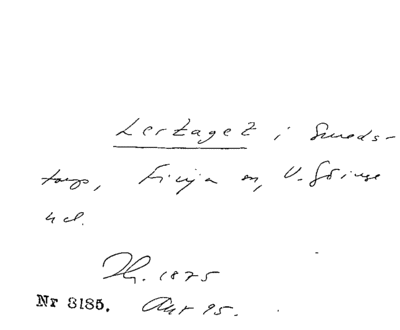 Lertaget i Smeds-
torp, Finja sn, V. Göinge
hd.
Th. 1875
Nr 8185. Ant 95.